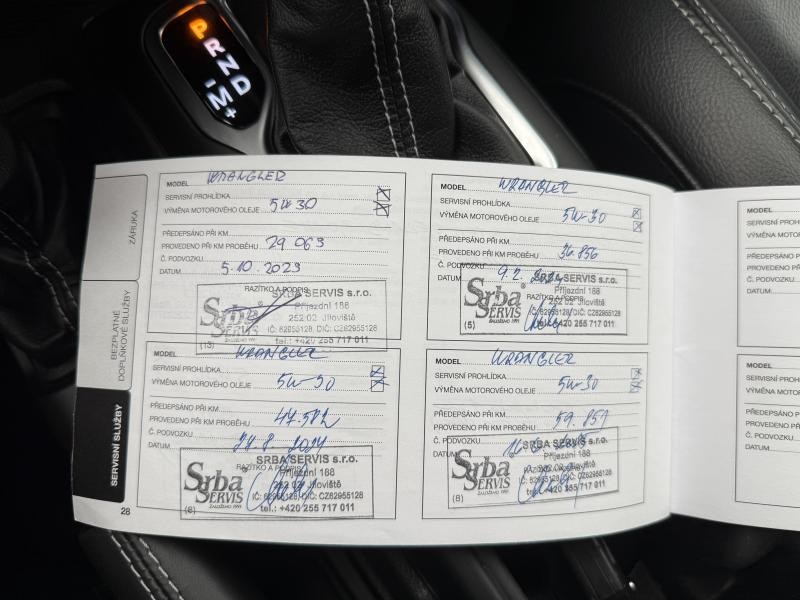 P
R
N
D
M
+
ZÁRUKA
BEZPLATNÉ
DOPLŇKOVÉ SLUŽBY
SERVISNÍ SLUŽBY
28
MODEL WRANGLER
SERVISNÍ PROHLÍDKA
VÝMĚNA MOTOROVÉHO OLEJE 5W30
PŘEDEPSÁNO PŘI KM
PROVEDENO PŘI KM PROBĚHU 29 063
Č. PODVOZKU
DATUM 5.10.2023
RAZÍTKO A PODPIS
SRBA SERVIS s.r.o.
Příjezdní 188
252 02 Jíloviště
IČ: 62955128, DIČ: CZ62955128
tel.: +420 255 717 011
Srba
SERVIS
ZALOŽENO 1991
(13)
MODEL WRANGLER
SERVISNÍ PROHLÍDKA
VÝMĚNA MOTOROVÉHO OLEJE 5W-30
PŘEDEPSÁNO PŘI KM
PROVEDENO PŘI KM PROBĚHU 36.856
Č. PODVOZKU
DATUM 9.2.
RAZÍTKO A
SRBA SERVIS s.r.o.
Příjezdní 188
252 02 Jíloviště
DIČ: CZ62955128
+420 255 717 011
Srba
SERVIS
ZALOŽENO 1991
(5)
MODEL WRANGLER
SERVISNÍ PROHLÍDKA
VÝMĚNA MOTOROVÉHO OLEJE 5W-30
PŘEDEPSÁNO PŘI KM
PROVEDENO PŘI KM PROBĚHU 47.582
Č. PODVOZKU
DATUM 8.2024
RAZÍTKO A PODPIS
SRBA SERVIS s.r.o.
Příjezdní 188
252 02 Jíloviště
IČ: 62955128, DIČ: CZ62955128
tel.: +420 255 717 011
Srba
SERVIS
ZALOŽENO 1991
(8)
MODEL WRANGLER
SERVISNÍ PROHLÍDKA
VÝMĚNA MOTOROVÉHO OLEJE 5W-30
PŘEDEPSÁNO PŘI KM
PROVEDENO PŘI KM PROBĚHU 59.851
Č. PODVOZKU
DATUM
SRBA SERVIS s.r.o.
Příjezdní 188
252 02 Jíloviště
DIČ: CZ62955128
+420 255 717 011
Srba
SERVIS
ZALOŽENO 1991
(8)
MODEL
SERVISNÍ PROHLÍ
VÝMĚNA MOTOR
PŘEDEPSÁNO PŘ
PROVEDENO PŘI
Č. PODVOZKU
DATUM
MODEL
SERVISNÍ PROHL
VÝMĚNA MOTO
PŘEDEPSÁNO P
PROVEDENO PŘ
Č. PODVOZKU
DATUM